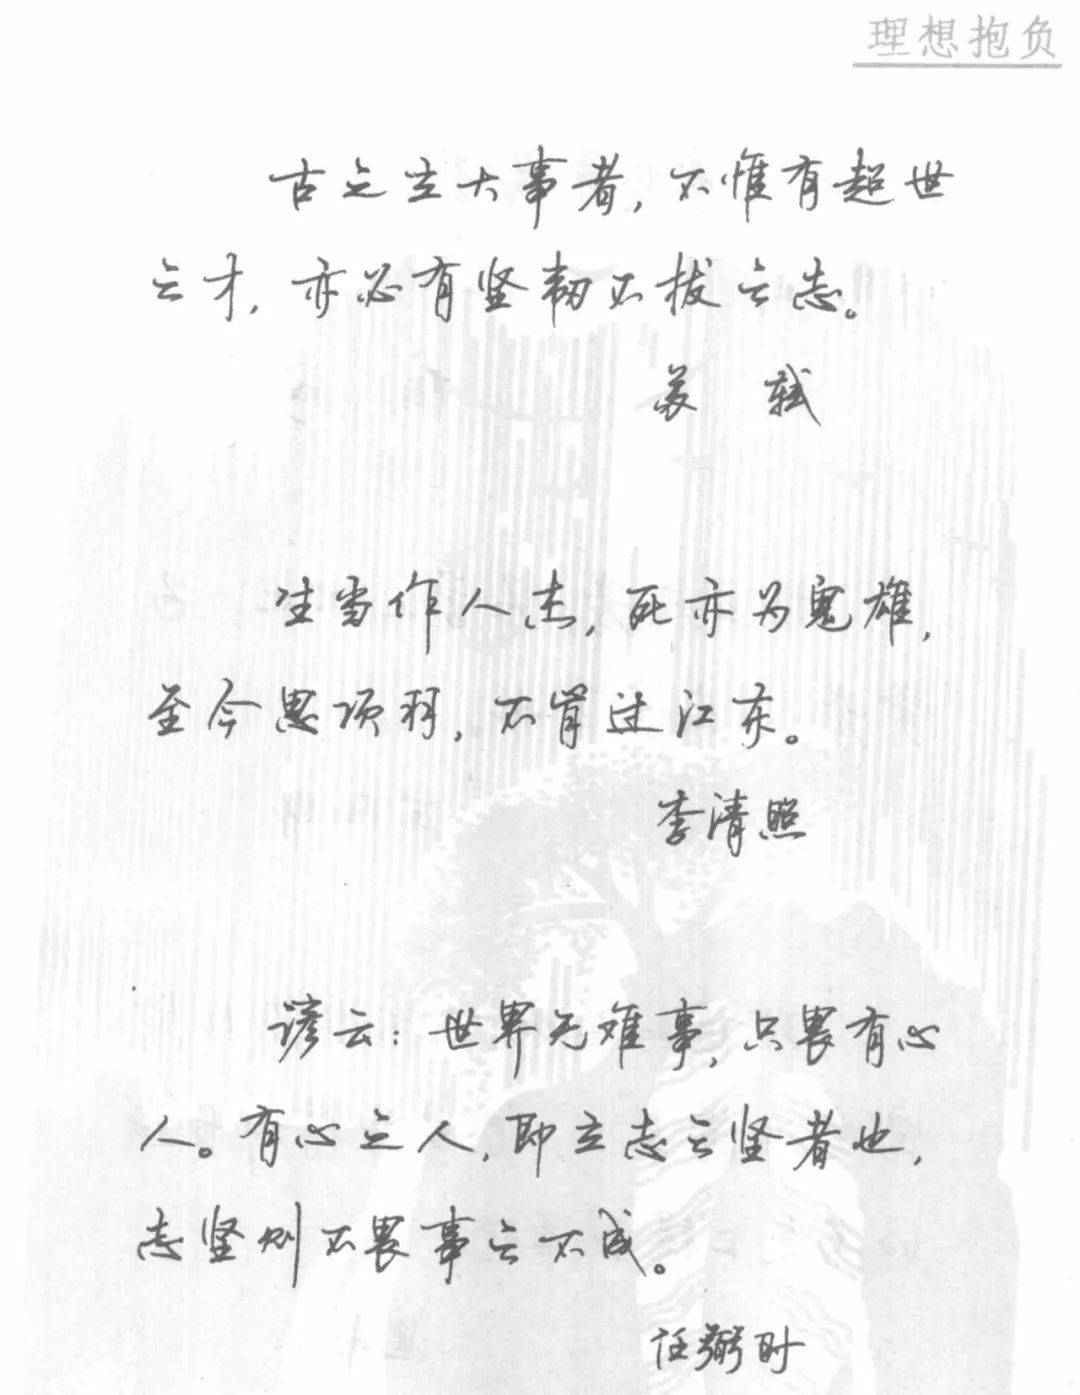 理想抱负
古之立大事者，不惟有超世
之才，亦必有坚韧不拔之志。
苏 轼
生当作人杰，死亦为鬼雄，
至今思项羽，不肯过江东。
李清照
谚云：世界无难事，只畏有心
人。有心之人，即立志之坚者也，
志坚则不畏事之不成。
任弼时